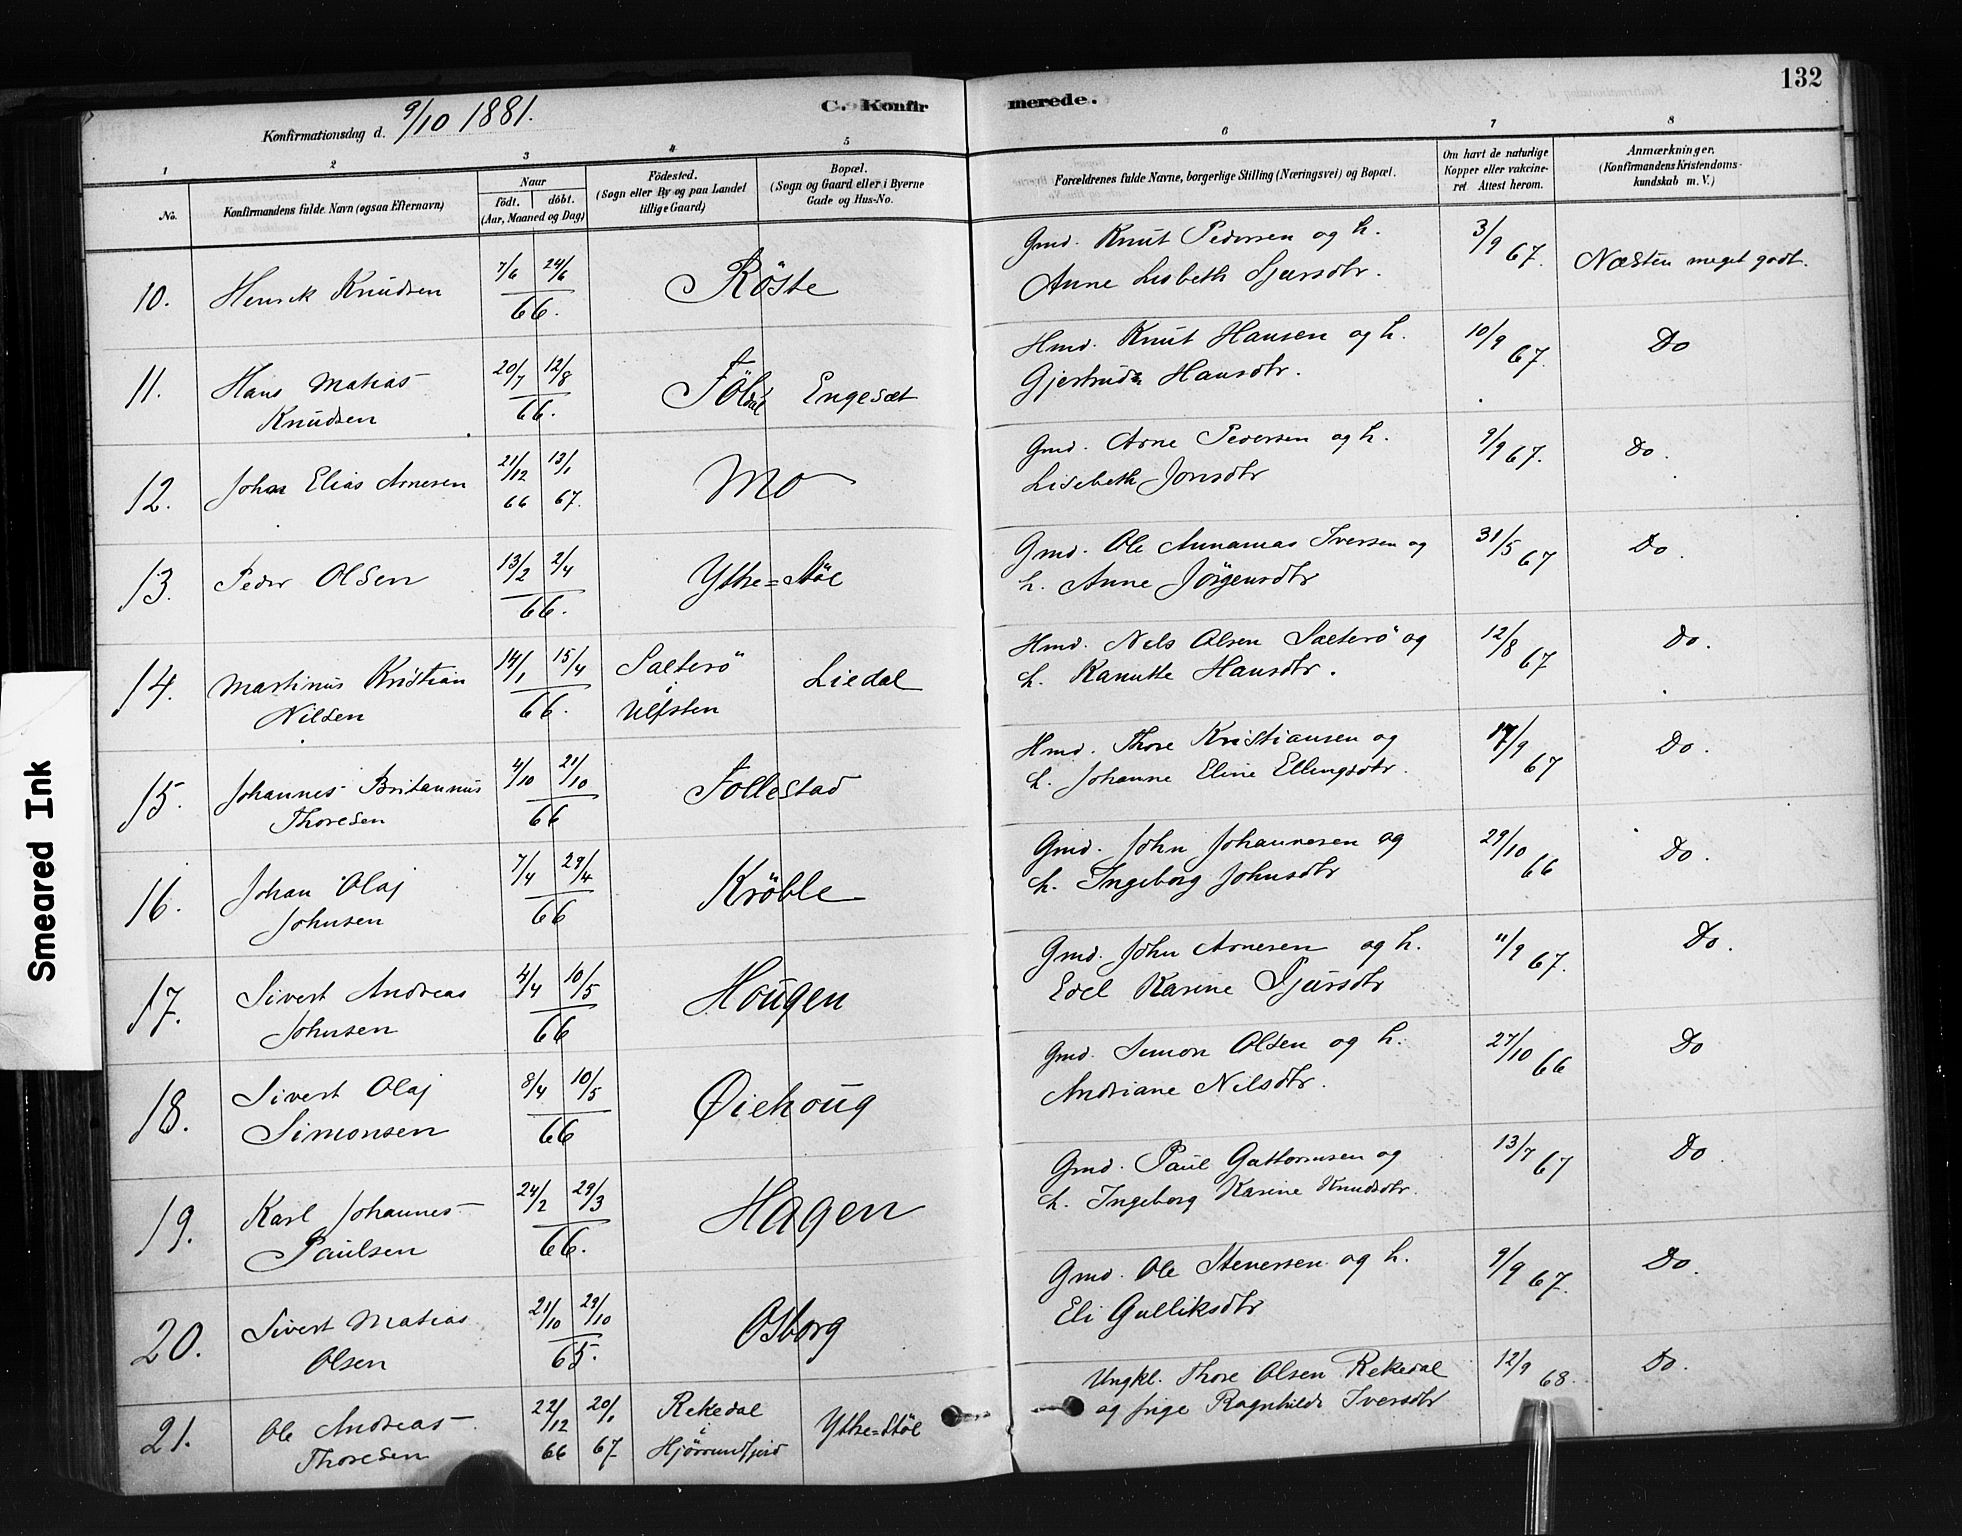 132
C. Konfirmerede.
Konfirmationsdag d. 9/10 1881.
1 2 3 4 5 6 7 8
No.
Konfirmandens fulde Navn (ogsaa Efternavn)
Naar
født. døbt.
(Aar, Maaned og Dag)
Födested.
(Sogn eller By og paa Landet
tillige Gaard)
Bopæl.
(Sogn og Gaard eller i Byerne
Gade og Hus-No.
Forældrenes fulde Navne, borgerlige Stilling (Næringsvei) og Bopæl.
Om havt de naturlige
Kopper eller vakcine-
ret. Attest herom.
Anmærkninger.
(Konfirmandens Kristendoms-
kundskab m. V.)
10. Henrik Knudsen 7/6 24/6 66. Röste
Gmd. Knut Pedersen og h.
Anne Lisbeth Sjursdtr. 3/9 67. Næsten meget godt.
11. Hans Matias
Knudsen 20/7 12/8 66. Engeset
Hmd. Knut Hansen og h.
Gjertrude Hansdtr. 10/9 67. Do
12. Johan Elias Arnesen 21/12 66 13/1 67. Mo
Gmd. Arne Pedersen og h.
Lisebeth Jonsdtr 9/9 67. Do.
13. Peder Olsen 13/2 2/4 66. Ythe=Støl
Gmd. Ole Annanias Iversen og
h. Anne Jörgensdtr 31/5 67 Do.
14. Martinus Kristian
Nilsen 14/1 15/4 66. Sæterö
i
Ulfsten Liedal
Hmd. Nels Olsen Sæterö og
h. Kanutte Hansdtr. 12/8 67 Do.
15. Johannes Britannus
Thoresen 4/10 21/10 66 Follestad
Hmd. Thore Kristiansen og
h. Johanne Eline Ellingsdtr. 17/9 67 Do.
16. Johan Olaj
Johnsen 7/4 29/4 66 Kröble
Gmd. John Johannesen og
h. Ingeborg Johnsdtr 29/10 66 Do.
17. Sivert Andreas
Johnsen 4/4 10/5 66 Hougen
Gmd. John Arnesen og h.
Edel Karine Sjursdtr 11/9 67. Do.
18. Sivert Olaj
Simonsen 8/4 10/5 66 Øiehoug
Gmd. Simon Olsen og h.
Andriane Nilsdtr. 27/10 66 Do
19. Karl Johannes
Paulsen 24/2 29/3 66. Hagen
Gmd. Paul Guttormsen og
h. Ingeborg Karine Knudsdtr. 13/7 67 Do.
20. Sivert Matias
Olsen 21/10 29/10 65. Osborg
Gmd. Ole Stenersen og h.
Eli Gulliksdtr 9/9 67. Do.
21. Ole Andreas
Thoresen 22/12 66 20/1 67 Rekedal
i
Hjörrundfjord Ythe=Støl
Ungkl. Thore Olsen Rekedal
og pige Ragnhilde Iversdtr 12/9 68. Do.
Smeared Ink